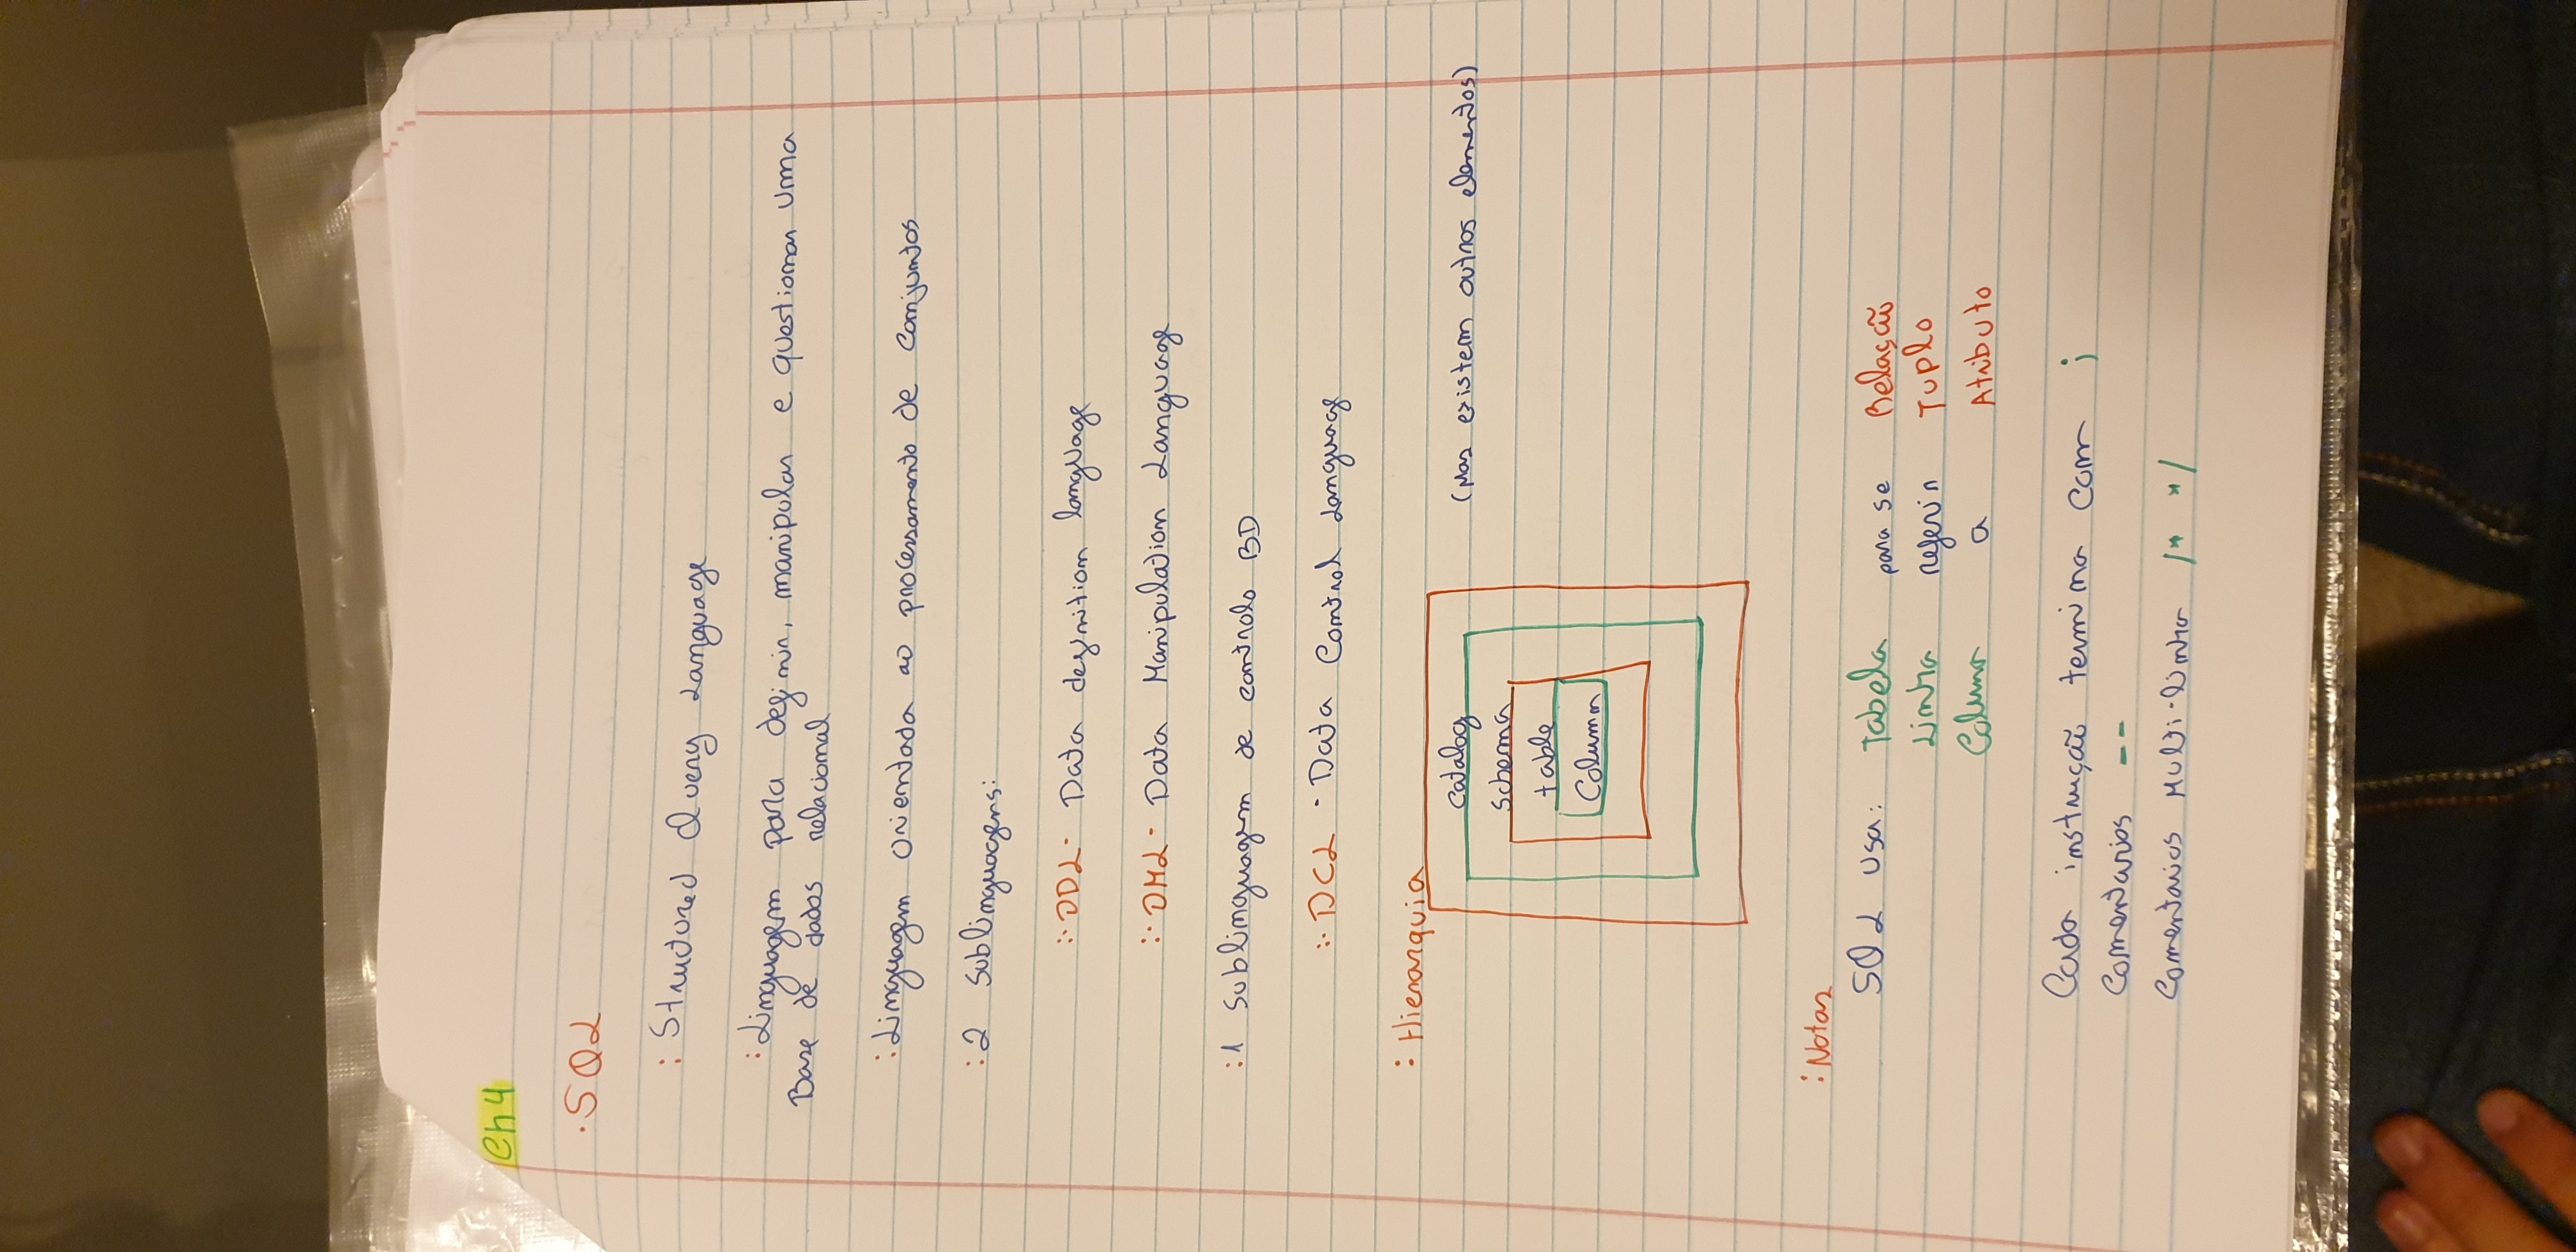 Ch4
· SQL
: Structured Query Language
: Linguagem para definir, manipular e questionar uma
Base de dados relacional
: Linguagem orientada ao processamento de conjuntos
: 2 Sublinguagens:
:· DDL · Data definition language
:· DML · Data Manipulation Language
: 1 Sublinguagem de controlo BD
:· DCL · Data Control Language
: Hierarquia
catalog (Mas existem outros elementos)
schema
table
Column
: Notas
SQL usa: Tabela para se Relação
Linha referir Tuplo
Coluna a Atributo
Cada instrução termina com ;
Comentarios --
Comentarios Multi-linha /* */